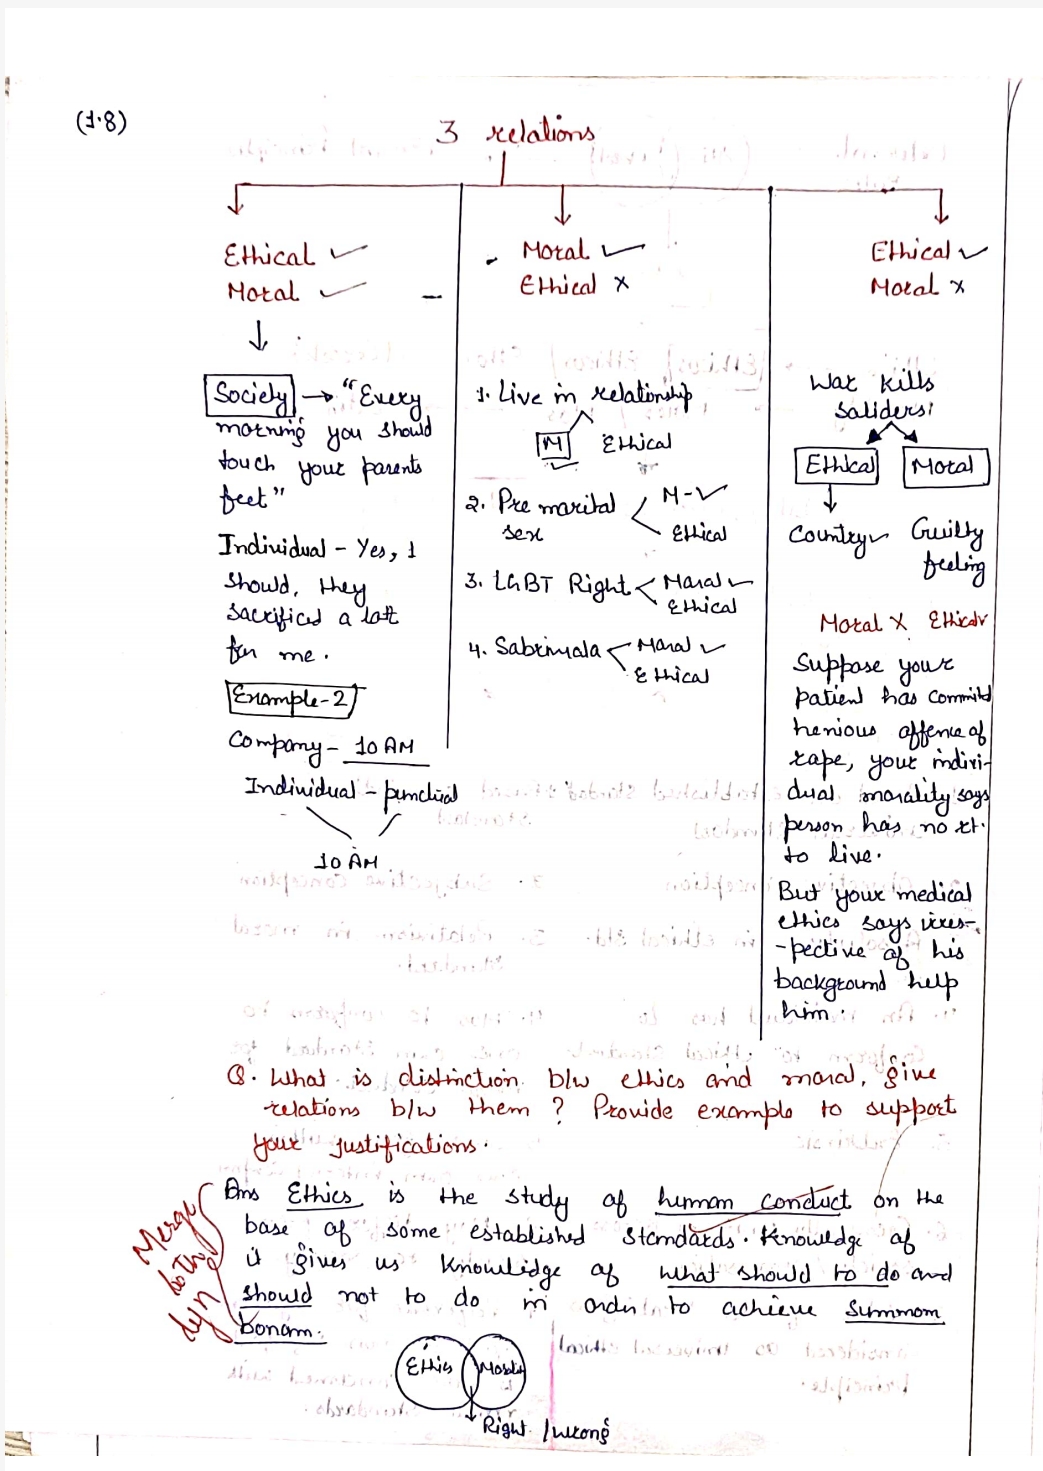 (1.8)
3 relations
Ethical ✓
Moral ✓
Society → "Every
morning you should
touch your parents
feet"
Individual - Yes, I
should, they
sacrificed a lott
for me.
Example-2
Company - 10 AM
Individual - punctual
10 AM
Moral ✓
Ethical x
1. Live in relationship
M Ethical
2. Pre marital
sex
M - ✓
Ethical
3. LGBT Right
Moral ✓
Ethical
4. Sabrimala
Moral ✓
Ethical
Ethical ✓
Moral x
War kills
saliders
Ethical Moral
Country ✓ Guilty
feeling
Moral X Ethical ✓
Suppose your
patient has commitd
henious offence of
rape, your indivi-
dual morality says
person has no rt.
to live.
But your medical
ethics says irres-
-pective of his
background help
him.
Q. What is distinction b/w ethics and moral, give
relations b/w them ? Provide example to support
your justifications.
Ans Ethics is the study of human conduct on the
base of some established standards. Knowledge of
it gives us knowlidge of what should to do and
should not to do in order to achieve summom
bonam.
Merge
both
dyn
Ethics Morality
Right / wrong